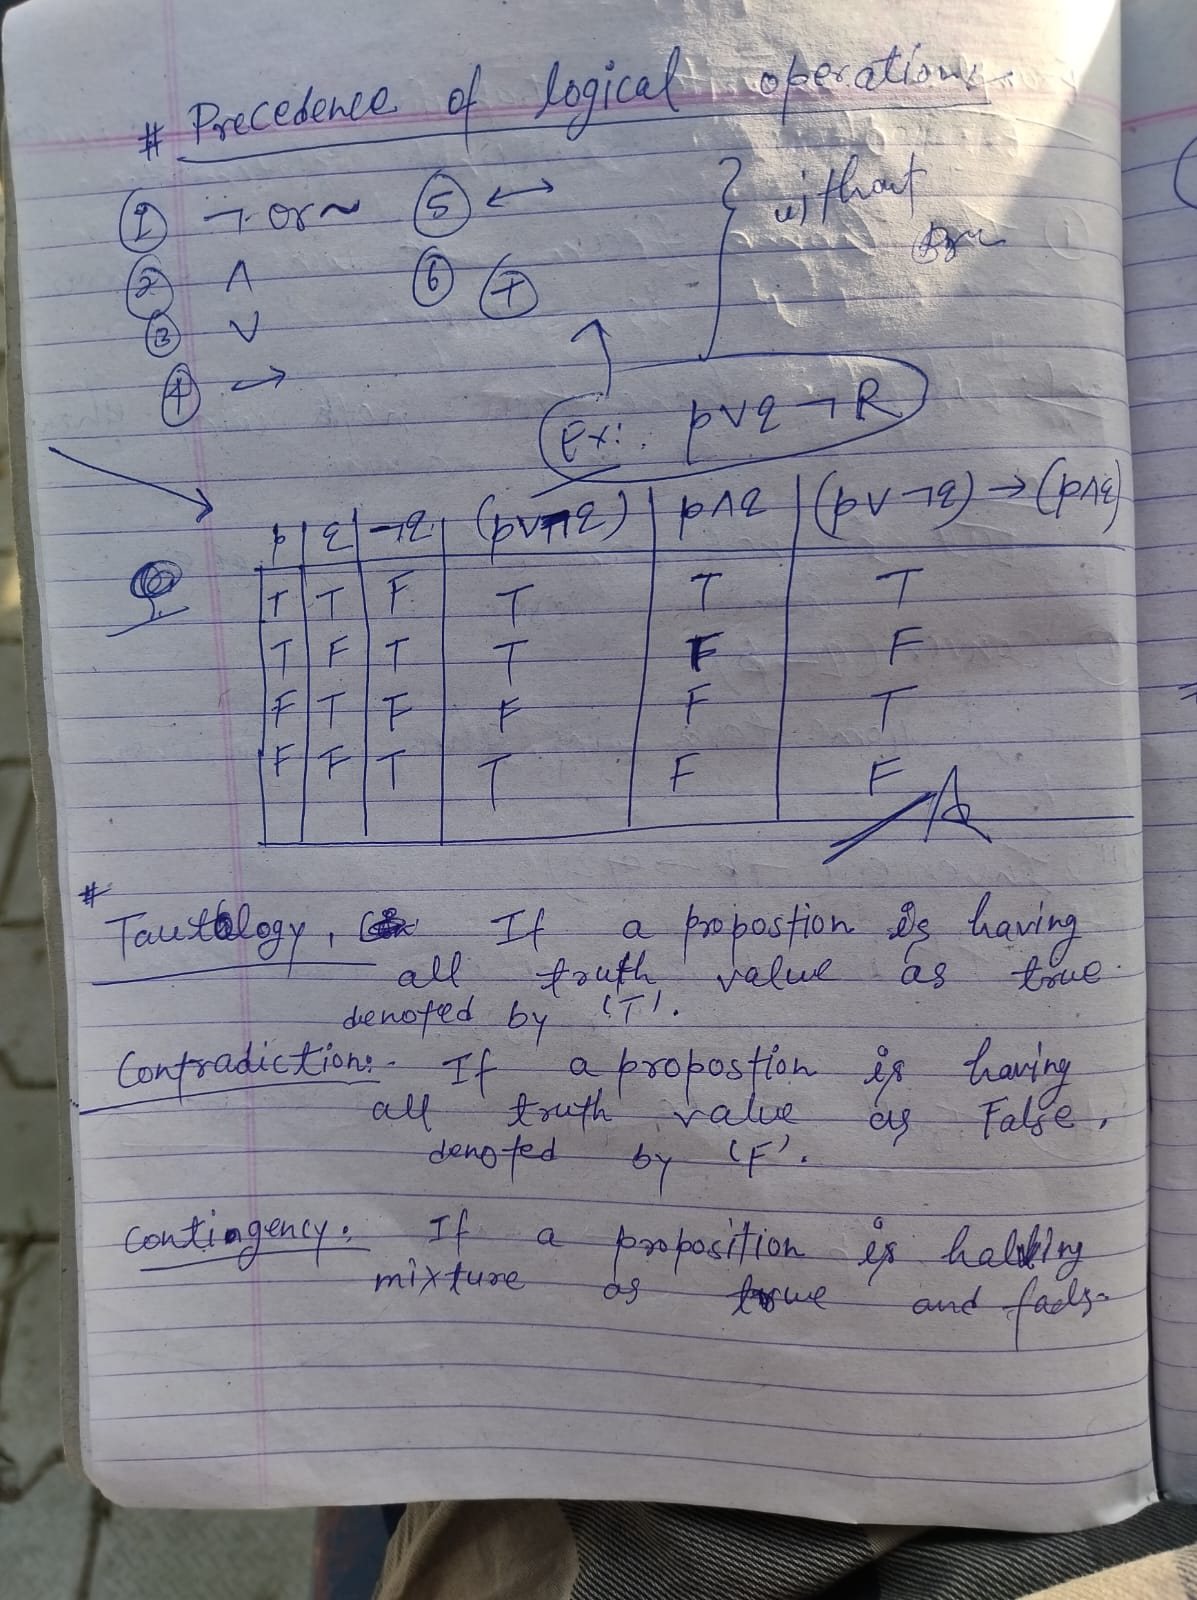 # Precedence of logical operations
① ¬ or ~ ⑤ ↔ } without
② ∧ ⑥ ⊕
③ ∨
④ →
Ex:. p∨q ¬R
p | q | ¬q | (p∨¬q) | p∧q | (p∨¬q) → (p∧q)
T | T | F | T | T | T
T | F | T | T | F | F
F | T | F | F | F | T
F | F | T | T | F | F
#
Tautology, If a propostion is having
all truth value as true.
denoted by 'T'.
Contradiction:- If a propostion is having
all truth value as False,
denoted by 'F'.
Contingency: If a proposition is
mixture as true and